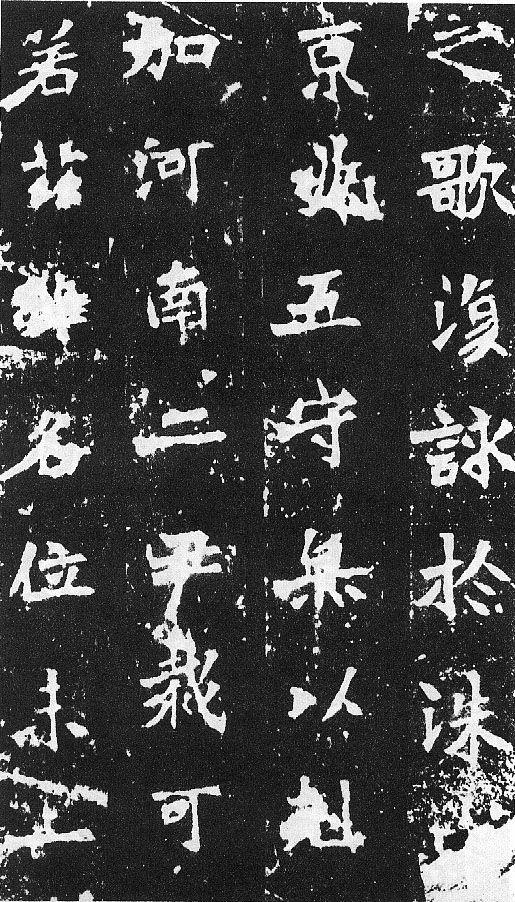 之歌復詠於洙
京兆五守無以尅
加河南二尹裁可
若茲雖名位未上